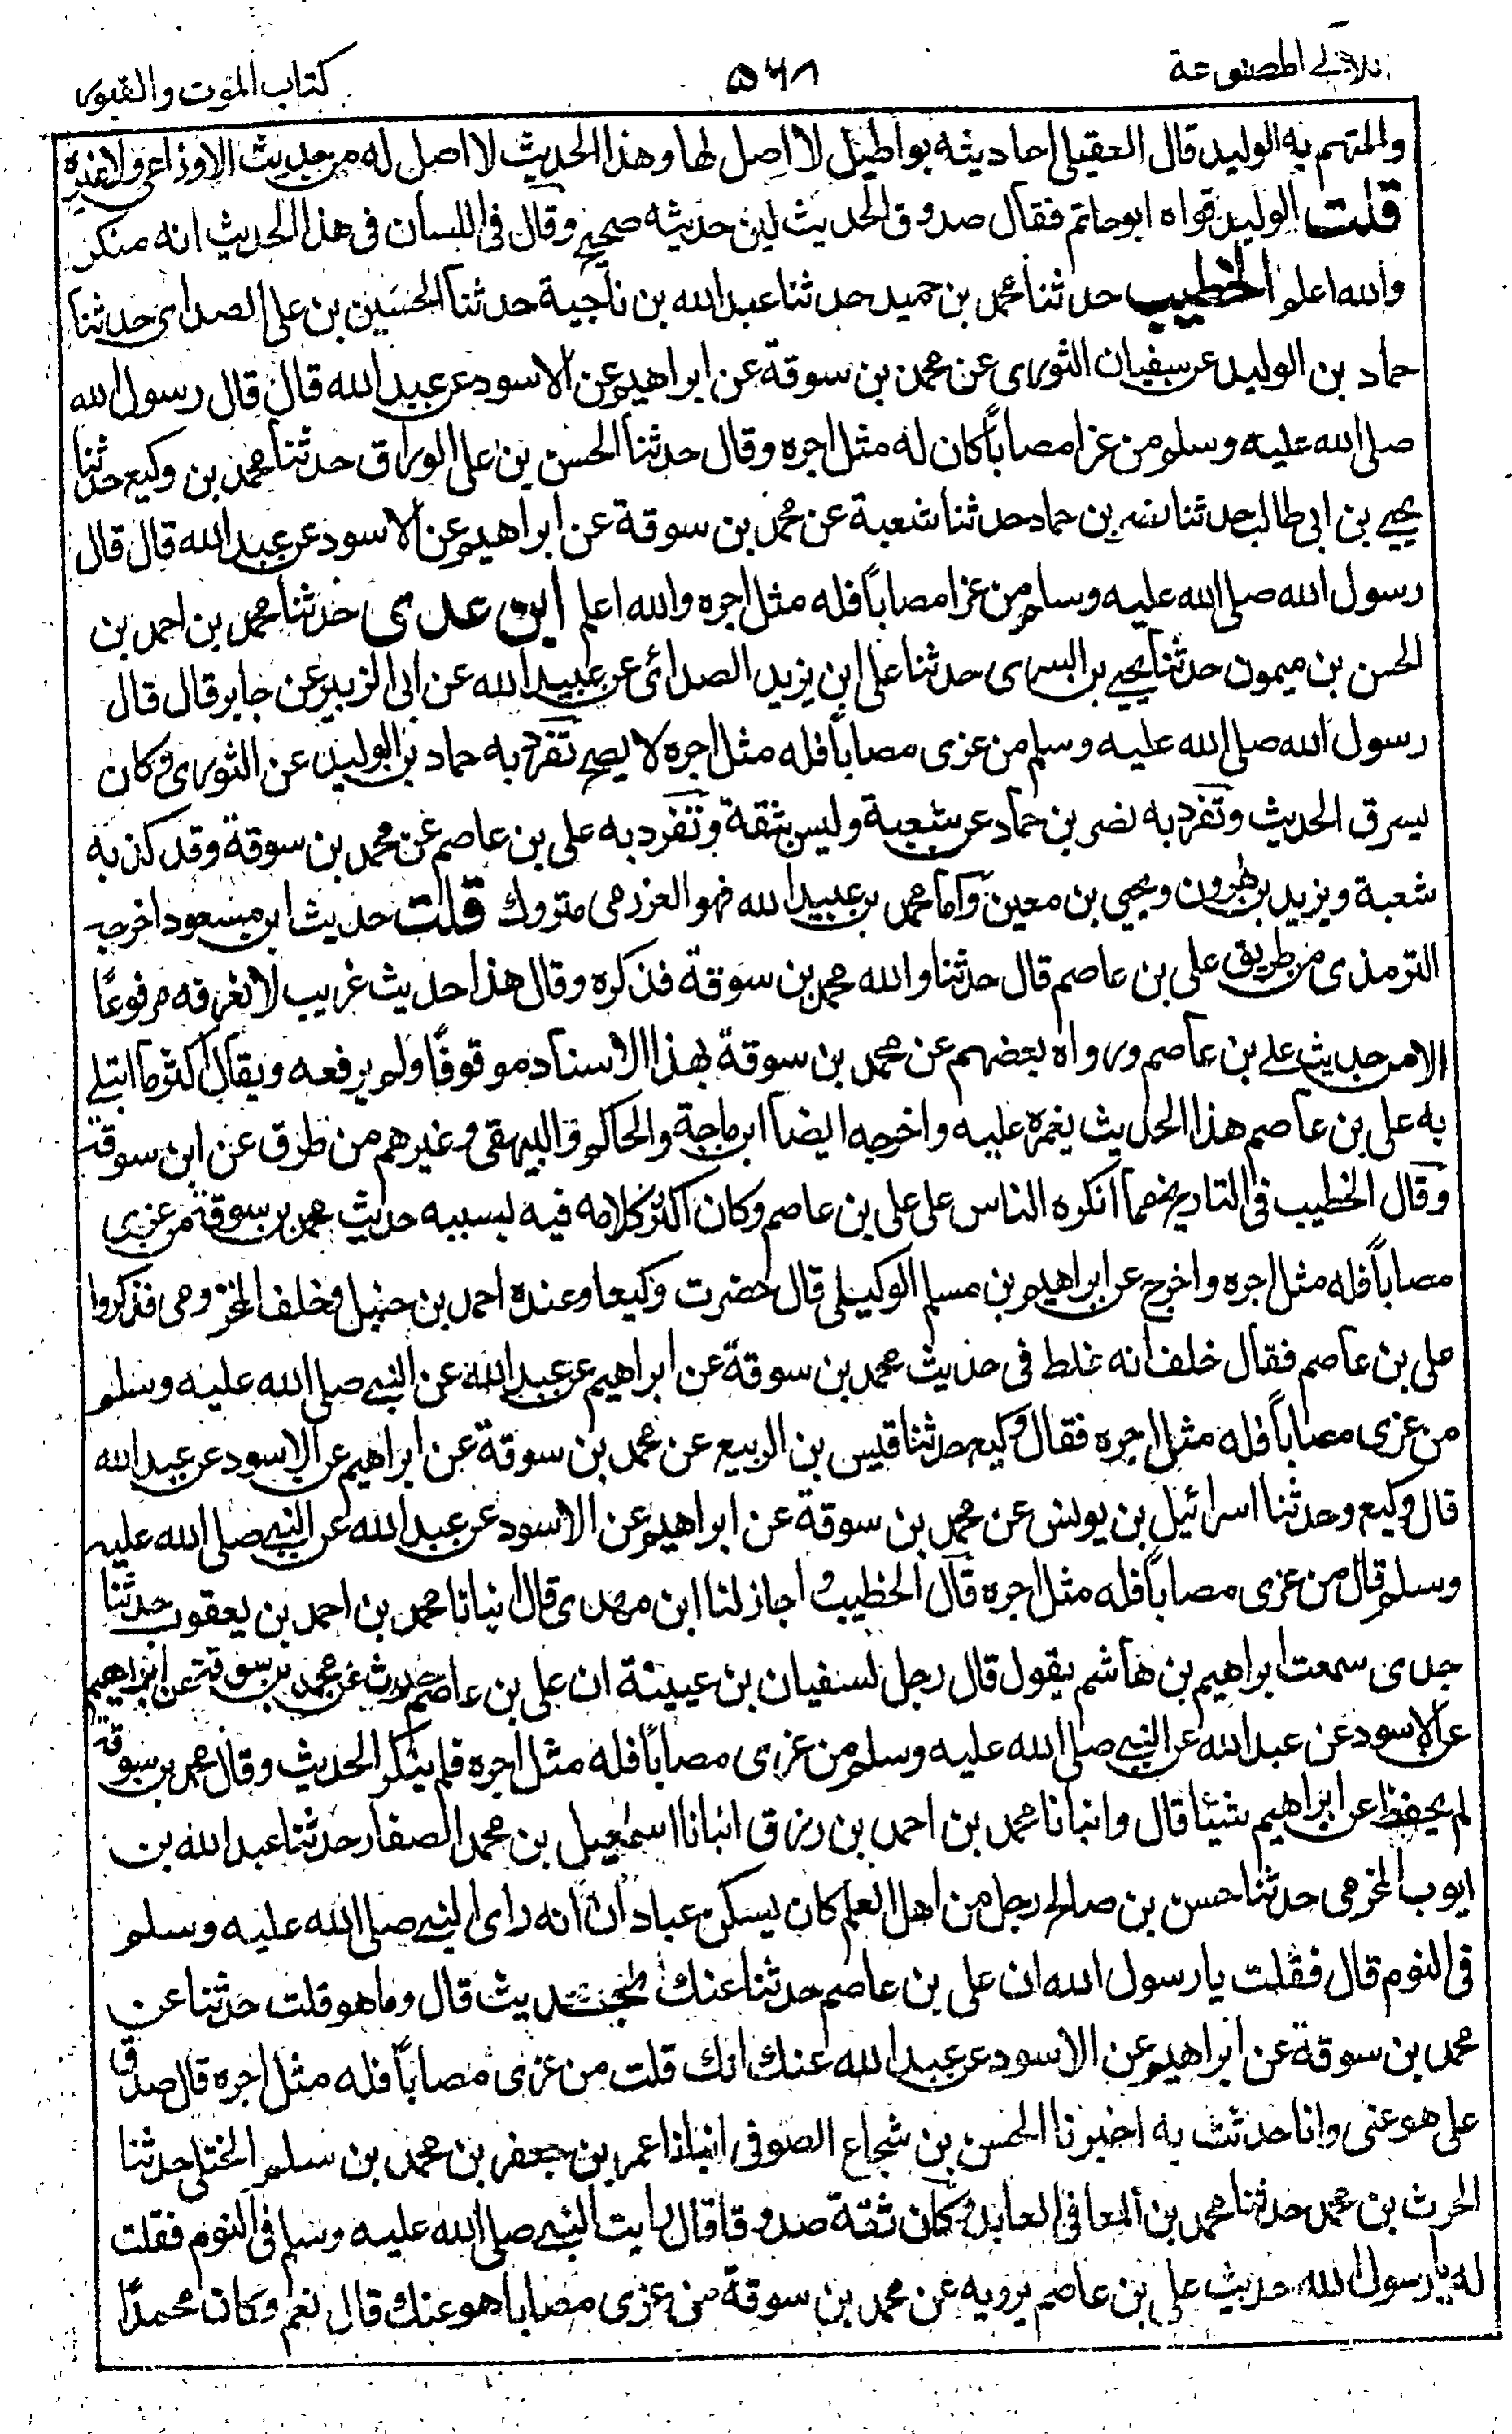 اللآلي المصنوعة
٥٦٨
كتاب الموت والقبور
والمتهم به الوليد قال العقيلى احاديثه بواطيل لا اصل لها وهذا الحديث لا اصل له من حديث الاوزاعى ولا غيره
قلت الوليد قواه ابو حاتم فقال صدوق الحديث لين حديثه صحيح وقال فى اللسان فى هذا الحديث انه منكر
والله اعلم الخطيب حدثنا محمد بن حميد حدثنا عبد الله بن ناجية حدثنا الحسين بن على الصدائى حدثنا
حماد بن الوليد عن سفيان الثورى عن محمد بن سوقة عن ابراهيم عن الاسود عن عبد الله قال قال رسول الله
صلى الله عليه وسلم من عزا مصاباً كان له مثل اجره وقال حدثنا الحسن بن على الوراق حدثنا محمد بن وكيع حدثنا
يحيى بن ابى طالب حدثنا نصر بن حماد حدثنا شعبة عن محمد بن سوقة عن ابراهيم عن الاسود عن عبد الله قال قال
رسول الله صلى الله عليه وسلم من عزا مصاباً فله مثل اجره والله اعلم ابن عدى حدثنا محمد بن احمد بن
الحسن بن ميمون حدثنا يحيى بن السرى حدثنا على ابن يزيد الصدائى عن عبيد الله عن ابى الزبير عن جابر قال قال
رسول الله صلى الله عليه وسلم من عزى مصاباً فله مثل اجره لا يصح تفرد به حماد بن الوليد عن الثورى وكان
يسرق الحديث وتفرد به نصر بن حماد عن شعبة وليس بثقة وتفرد به على بن عاصم عن محمد بن سوقة وقد كذبه
شعبة ويزيد بن هرون ويحيى بن معين واما محمد بن عبيد الله فهو العزرمى متروك قلت حديث ابن مسعود اخرجه
الترمذى من طريق على بن عاصم قال حدثنا والله محمد بن سوقة فذكره وقال هذا حديث غريب لا نعرفه مرفوعًا
الا من حديث على بن عاصم ورواه بعضهم عن محمد بن سوقة بهذا الاسناد موقوفًا ولم يرفعه ويقال اكثر ما ابتلى
به على بن عاصم هذا الحديث نقموه عليه واخرجه ايضا ابن ماجة والحاكم والبيهقى وغيرهم من طرق عن ابن سوقة
وقال الخطيب فى التاريخ مما انكره الناس على على بن عاصم وكان اكثر كلامه فيه لسببه حديث محمد بن سوقة من عزى
مصاباً فله مثل اجره واخرج عن ابراهيم بن مسلم الوكيلى قال حضرت وكيعا وعنده احمد بن حنبل وخلف المخزومى فذكروا
على بن عاصم فقال خلف انه غلط فى حديث محمد بن سوقة عن ابراهيم عن عبد الله عن النبى صلى الله عليه وسلم
من عزى مصاباً فله مثل اجره فقال وكيع حدثنا قيس بن الربيع عن محمد بن سوقة عن ابراهيم عن الاسود عن عبد الله
قال وكيع وحدثنا اسرائيل بن يونس عن محمد بن سوقة عن ابراهيم عن الاسود عن عبد الله عن النبى صلى الله عليه
وسلم قال من عزى مصاباً فله مثل اجره قال الخطيب و اجاز لنا ابن مهدى قال انبانا محمد بن احمد بن يعقوب حدثنا
جدى سمعت ابراهيم بن هاشم يقول قال رجل لسفيان بن عيينة ان على بن عاصم حدث عن محمد بن سوقة عن ابراهيم
عن الاسود عن عبد الله عن النبى صلى الله عليه وسلم من عزى مصاباً فله مثل اجره فلم ينكر الحديث وقال محمد بن سوقة
لم يحفظ عن ابراهيم شيئا قال وانبانا محمد بن احمد بن رزق انبانا اسمعيل بن محمد الصفار حدثنا عبد الله بن
ايوب المخرمى حدثنا حسن بن صالح رجل من اهل العلم كان يسكن عبادان انه راى النبى صلى الله عليه وسلم
فى النوم قال فقلت يا رسول الله ان على بن عاصم حدثنا عنك بحديث قال وما هو قلت حدثنا عن
محمد بن سوقة عن ابراهيم عن الاسود عن عبد الله عنك انك قلت من عزى مصاباً فله مثل اجره قال صدق
على هو عنى وانا حدثت به اخبرنا الحسن بن شجاع الصوفى انبانا عمر بن جعفر بن محمد بن سلم الختلى حدثنا
الحرث بن محمد حدثنا محمد بن المعافى العابد وكان ثقة صدوقا قال رايت النبى صلى الله عليه وسلم فى النوم فقلت
له يا رسول الله حديث على بن عاصم يرويه عن محمد بن سوقة من عزى مصابا هو عنك قال نعم وكان محمدًا